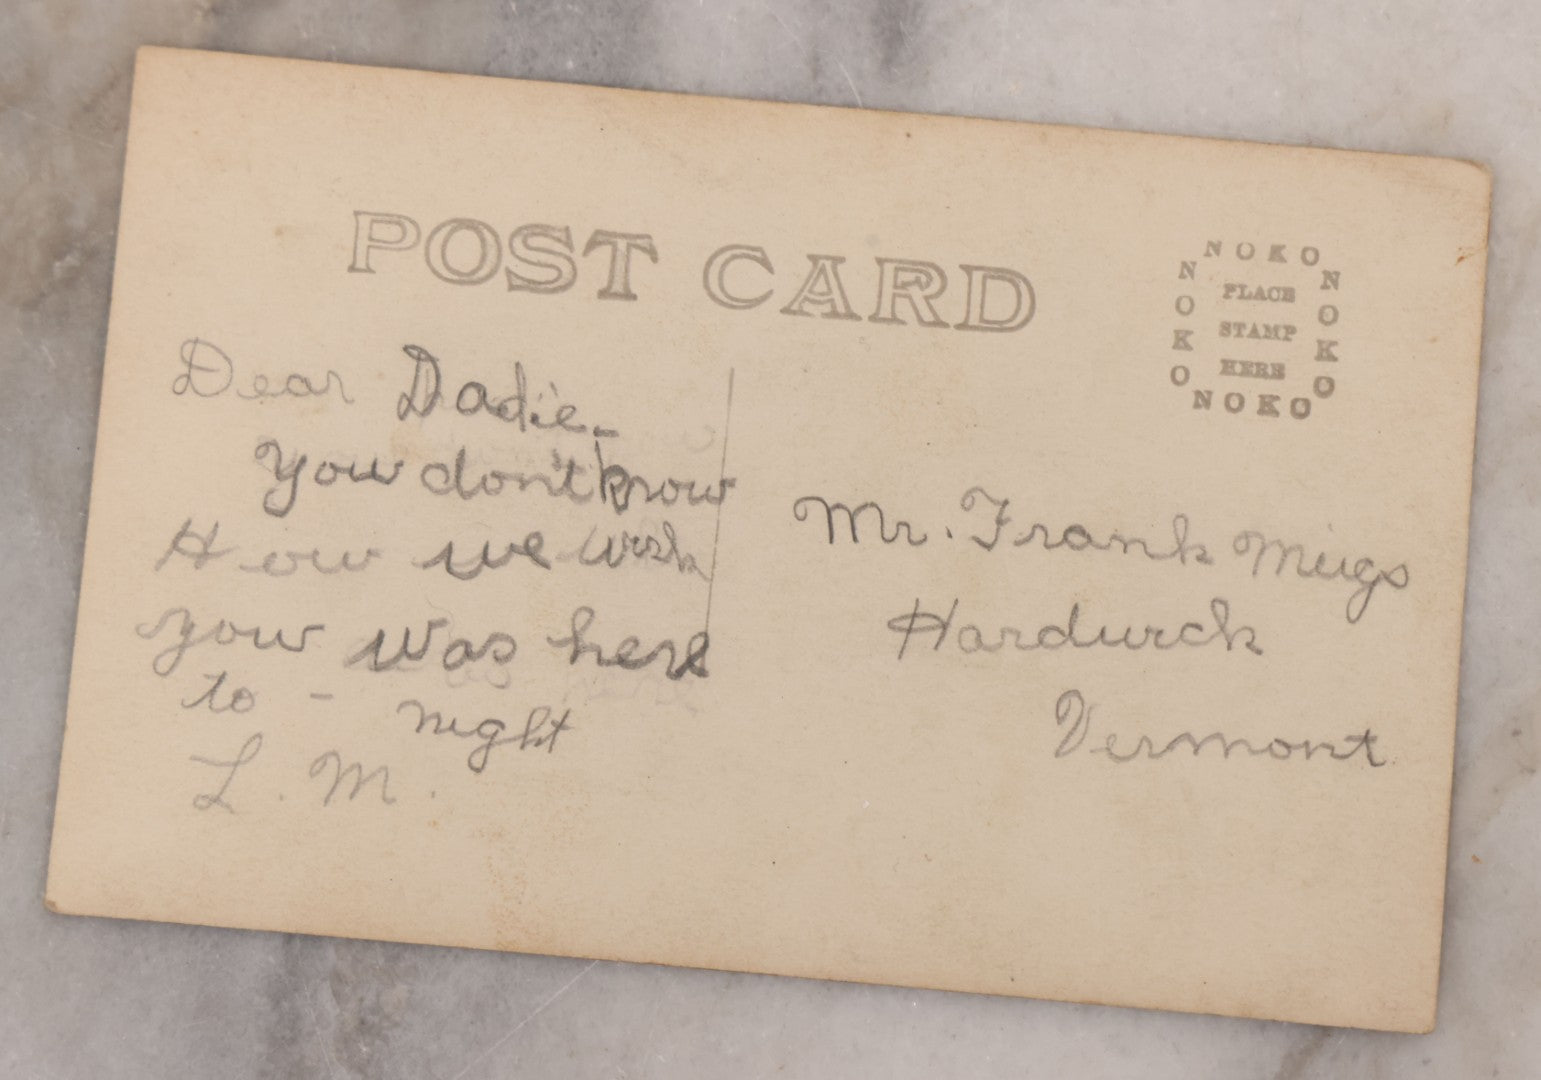 POST CARD
NOKO
NOKO
NOKO
NOKO
PLACE
STAMP
HERE
Dear Dadie -
You don't know
How we wish
you was here
to - night
L. M.
Mr. Frank Meigs
Hardwick
Vermont